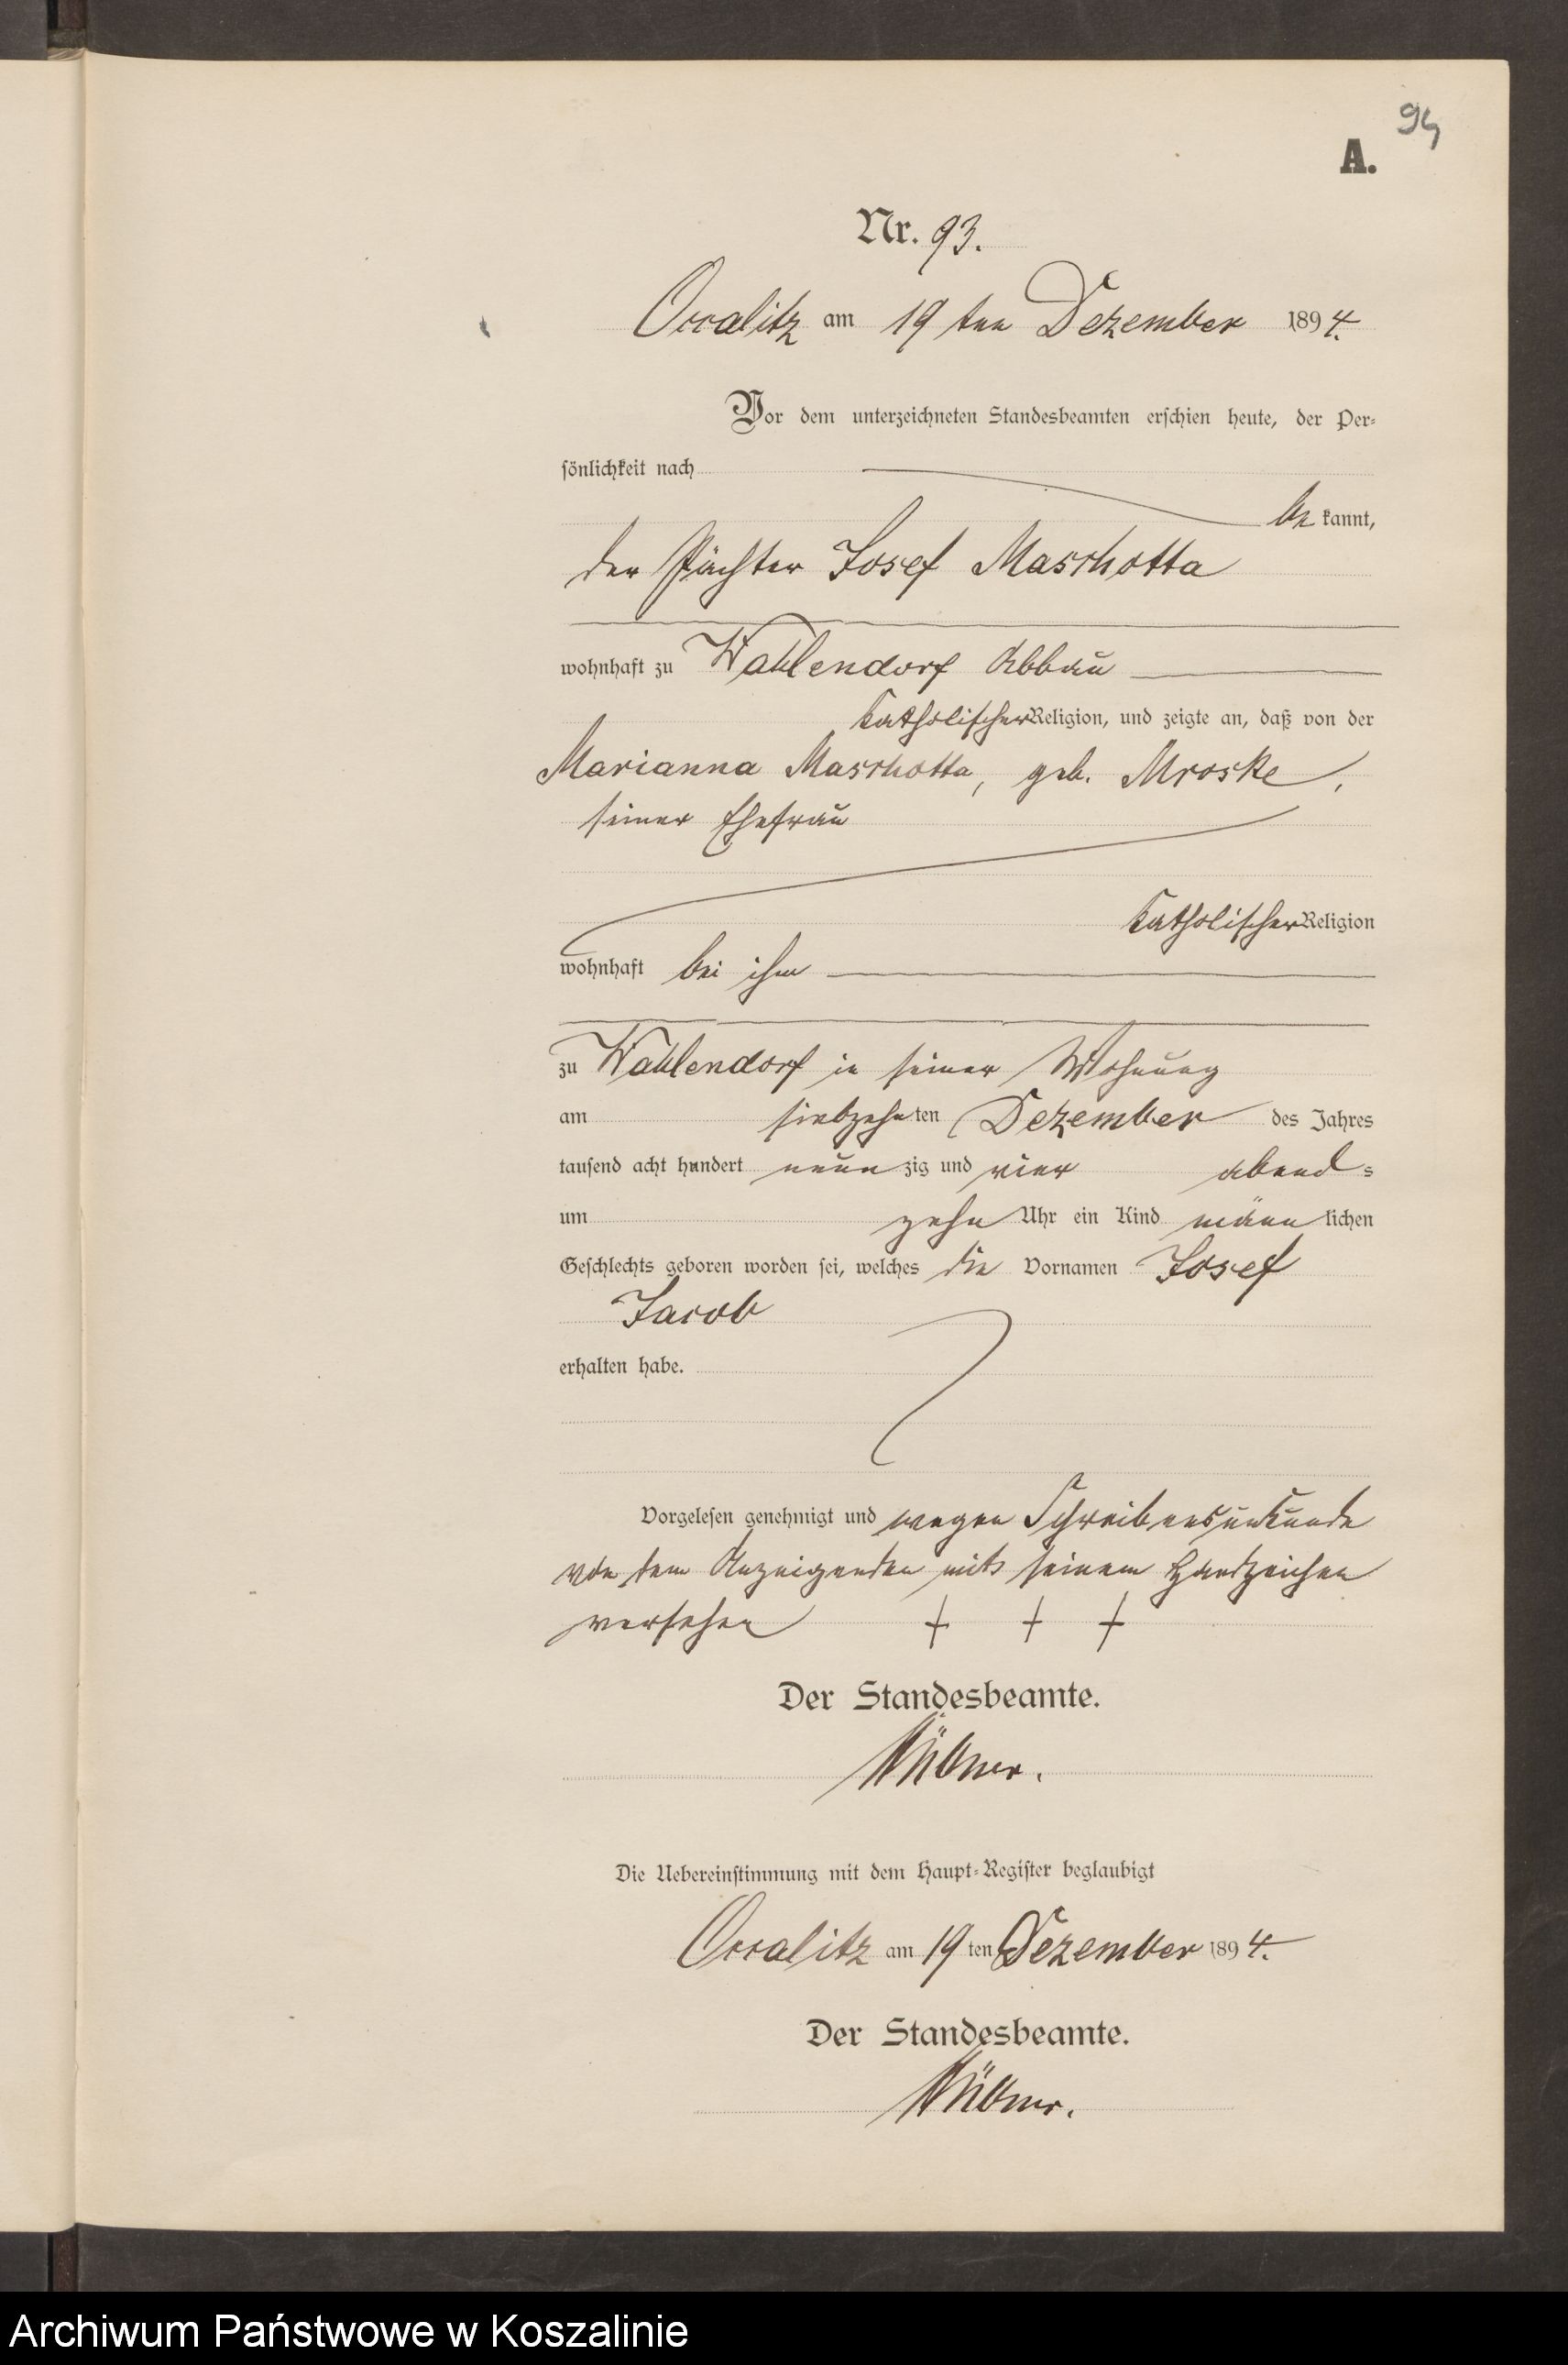 94
A.
Nr. 93.
Occalitz am 19 ten Dezember 1894.
Vor dem unterzeichneten Standesbeamten erschien heute, der Per-
sönlichkeit nach
be kannt,
der Pächter Josef Maschotta
wohnhaft zu Wahlendorf Abbau
katholischer Religion, und zeigte an, daß von der
Marianna Maschotta, geb. Mroske,
seiner Ehefrau
katholischer Religion
wohnhaft bei ihm
zu Wahlendorf in seiner Wohnung
am siebzehnten Dezember des Jahres
tausend acht hundert neunzig und vier abends
um zehn Uhr ein Kind männlichen
Geschlechts geboren worden sei, welches die Vornamen Josef
Jacob
erhalten habe.
Vorgelesen genehmigt und wegen Schreibensunkunde
von dem Anzeigenden mit seinem Handzeichen
versehen + + +
Der Standesbeamte.
Die Uebereinstimmung mit dem Haupt-Register beglaubigt
Occalitz am 19 ten Dezember 1894.
Der Standesbeamte.
Archiwum Państwowe w Koszalinie